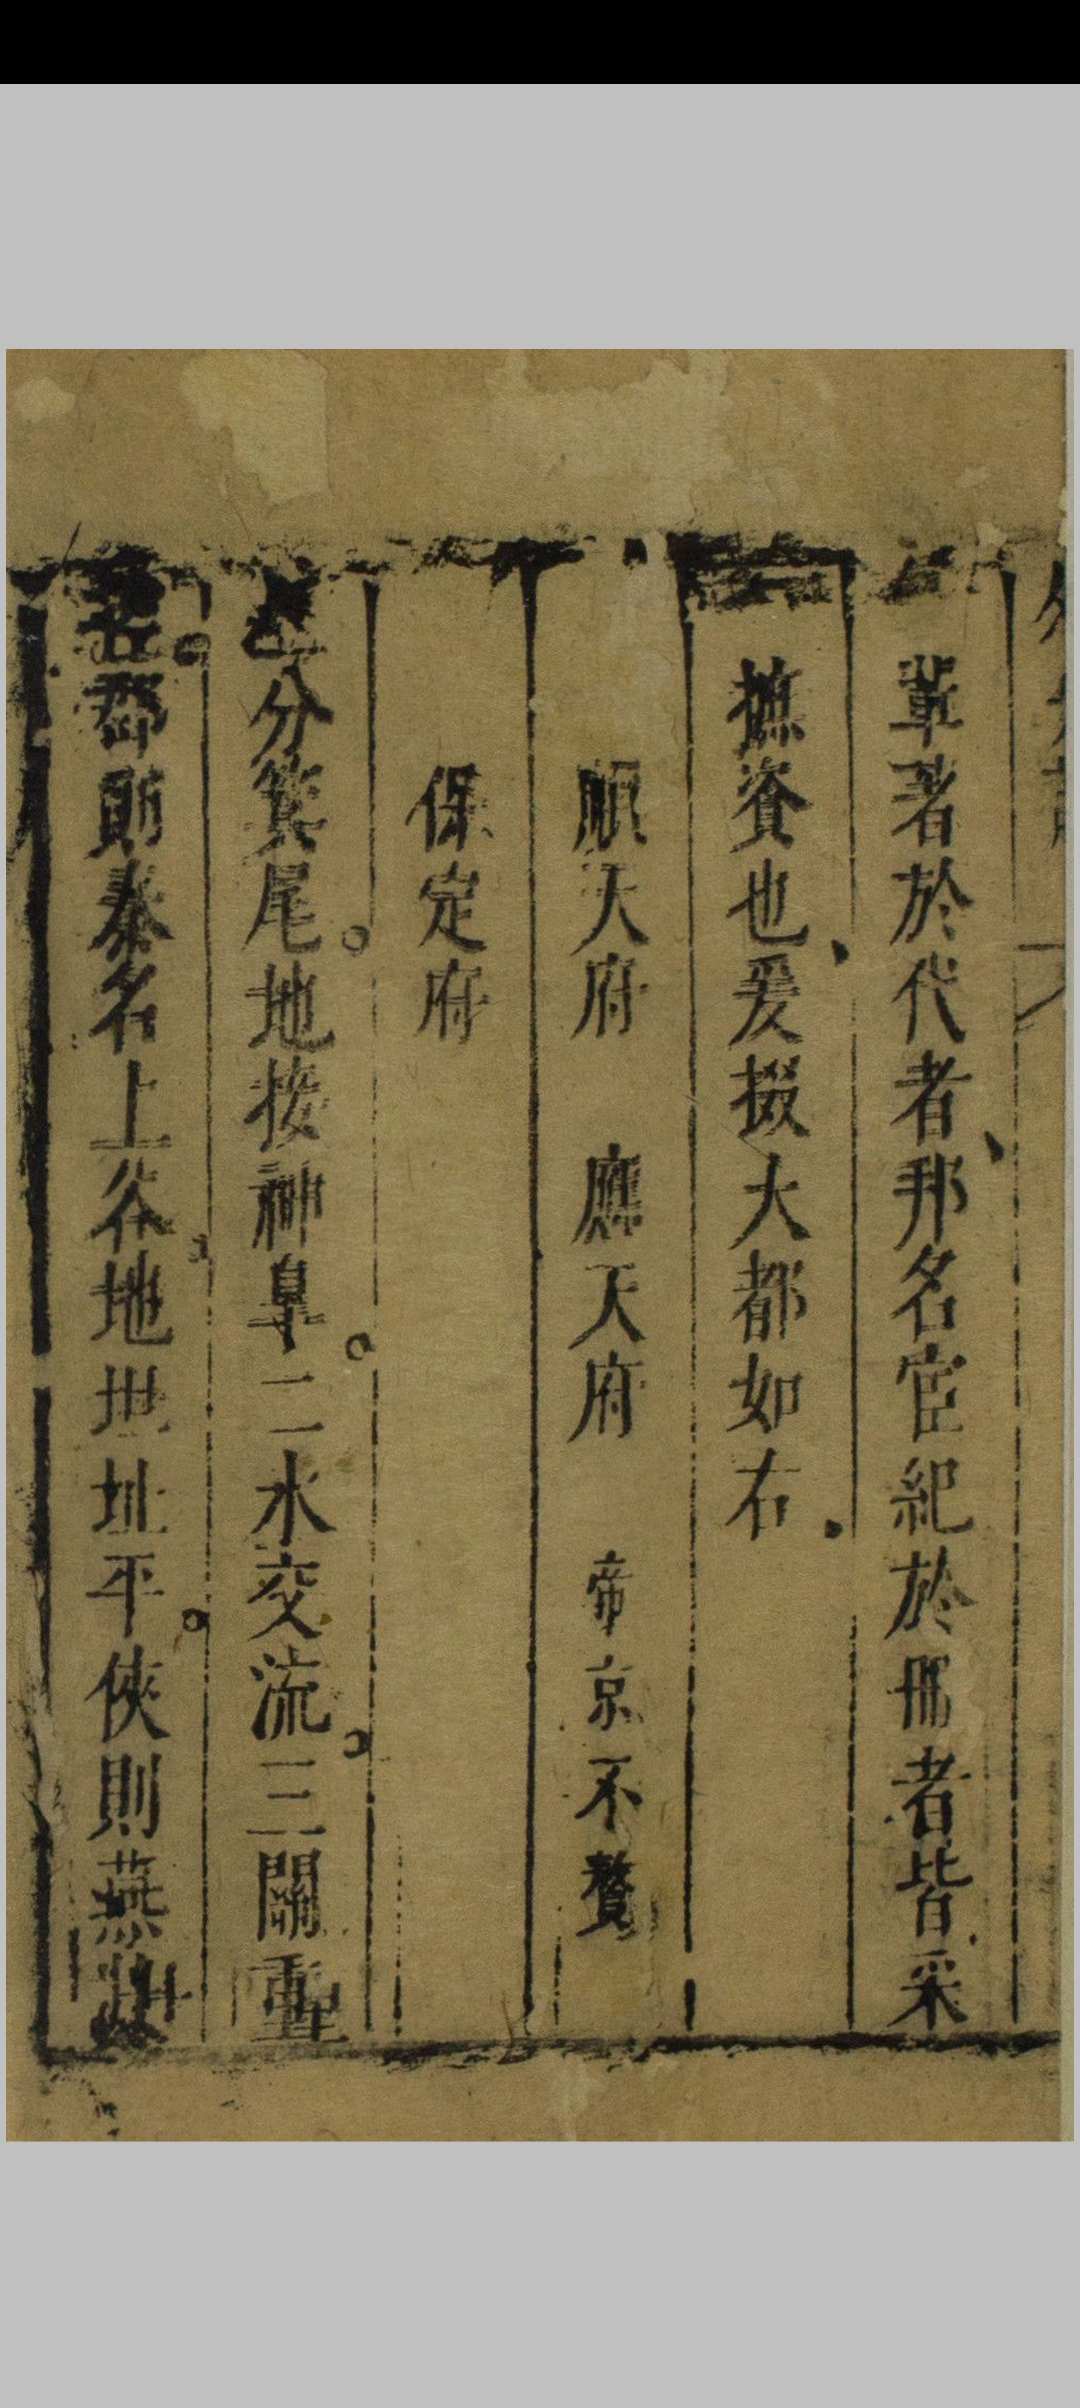 著於代者邦名宦紀於冊者皆采
摭資也爰掇大都如右
順天府 應天府 帝京不贅
保定府
分箕尾地接神皐二水交流三關重
郡則秦名上谷地 址平俠則燕